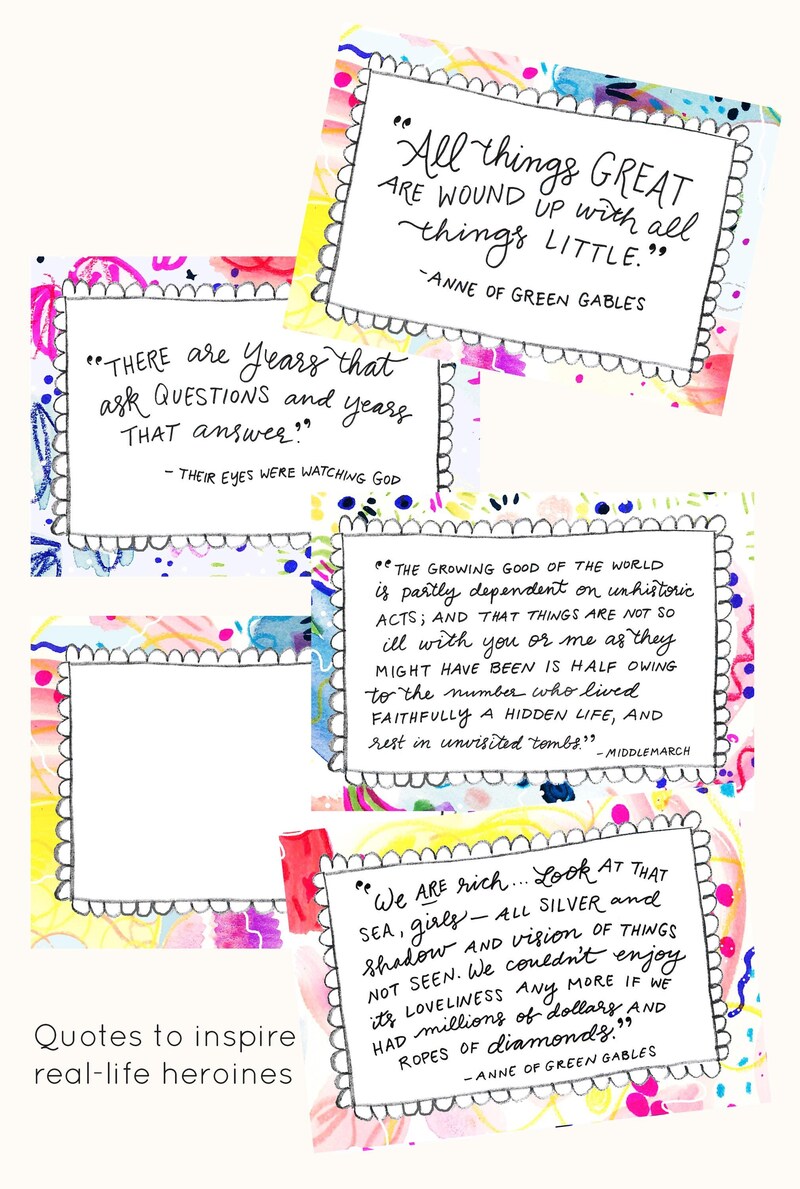 “All things GREAT
ARE WOUND UP with all
things LITTLE.”
-ANNE OF GREEN GABLES
“THERE are years that
ask QUESTIONS and years
THAT answer.”
- THEIR EYES WERE WATCHING GOD
“THE GROWING GOOD OF THE WORLD
is partly dependent on unhistoric
ACTS; AND THAT THINGS ARE NOT SO
ill with you or me as they
MIGHT HAVE BEEN IS HALF OWING
to the number who lived
FAITHFULLY A HIDDEN LIFE, AND
rest in unvisited tombs.”
- MIDDLEMARCH
“We ARE rich... Look AT THAT
SEA, girls — ALL SILVER and
shadow AND vision OF THINGS
NOT SEEN. We couldn't enjoy
its LOVELINESS ANY MORE IF WE
HAD millions of dollars AND
ROPES OF diamonds.”
-ANNE OF GREEN GABLES
Quotes to inspire
real-life heroines